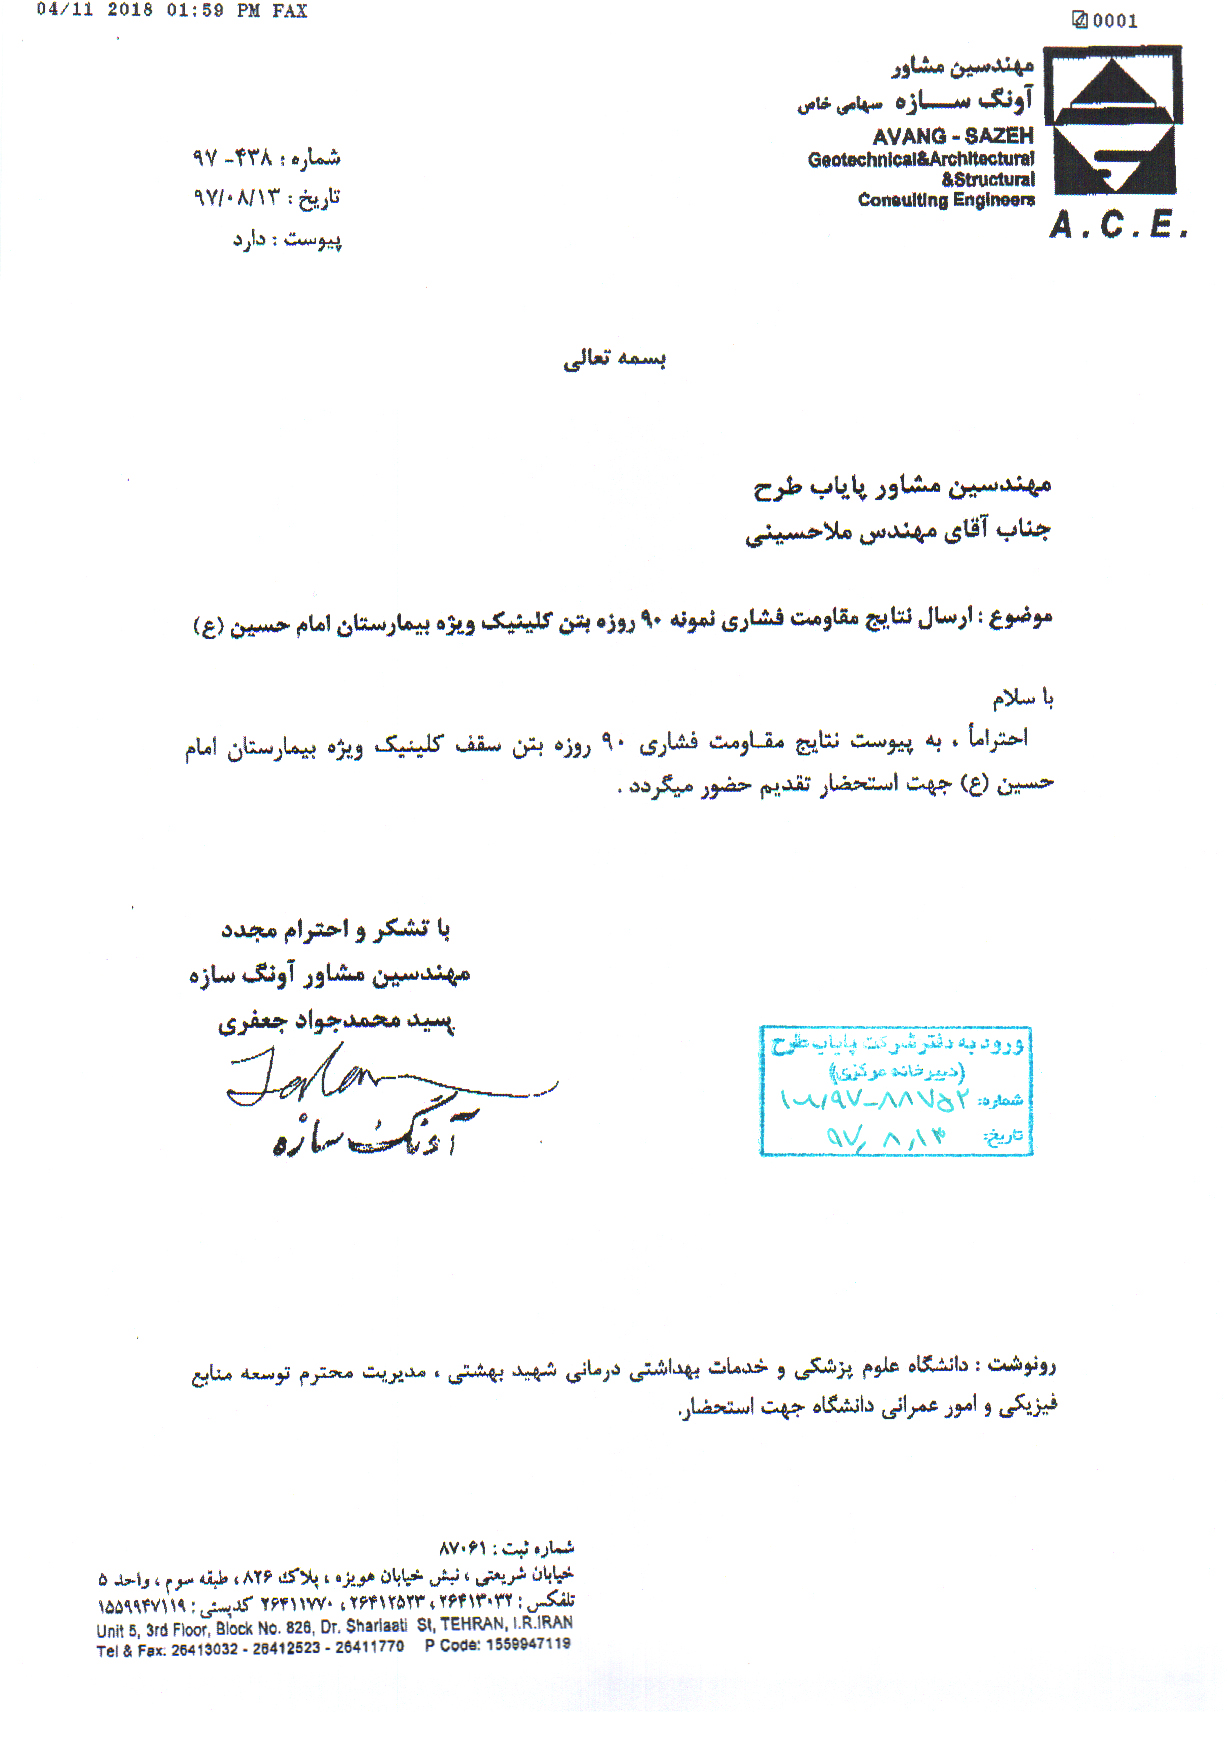 04/11 2018 01:59 PM FAX
0001
مهندسین مشاور
آونگ سازه سهامی خاص
AVANG - SAZEH
Geotechnical&Architectural
&Structural
Consulting Engineers
A.C.E.
شماره : ۴۳۸- ۹۷
تاریخ : ۹۷/۰۸/۱۳
پیوست : دارد
بسمه تعالی
مهندسین مشاور پایاب طرح
جناب آقای مهندس ملاحسینی
موضوع : ارسال نتایج مقاومت فشاری نمونه ۹۰ روزه بتن کلینیک ویژه بیمارستان امام حسین (ع)
با سلام
احتراماً ، به پیوست نتایج مقاومت فشاری ۹۰ روزه بتن سقف کلینیک ویژه بیمارستان امام
حسین (ع) جهت استحضار تقدیم حضور میگردد .
با تشکر و احترام مجدد
مهندسین مشاور آونگ سازه
سید محمدجواد جعفری
آونگ سازه
ورود به دفتر شرکت پایاب طرح
(دبیرخانه مرکزی)
شماره: ۸۸۷۵۲-۹۷/
تاریخ: ۹۷/۸/۱۴
رونوشت : دانشگاه علوم پزشکی و خدمات بهداشتی درمانی شهید بهشتی ، مدیریت محترم توسعه منابع
فیزیکی و امور عمرانی دانشگاه جهت استحضار.
شماره ثبت : ۸۷۰۶۱
خیابان شریعتی ، نبش خیابان هویزه ، پلاک ۸۲۶ ، طبقه سوم ، واحد ۵
تلفکس : ۲۶۴۱۳۰۳۲ ، ۲۶۴۱۲۵۲۳ ، ۲۶۴۱۱۷۷۰ کدپستی : ۱۵۵۹۹۴۷۱۱۹
Unit 5, 3rd Floor, Block No. 826, Dr. Shariaati St, TEHRAN, I.R.IRAN
Tel & Fax: 26413032 - 26412523 - 26411770 P Code: 1559947119